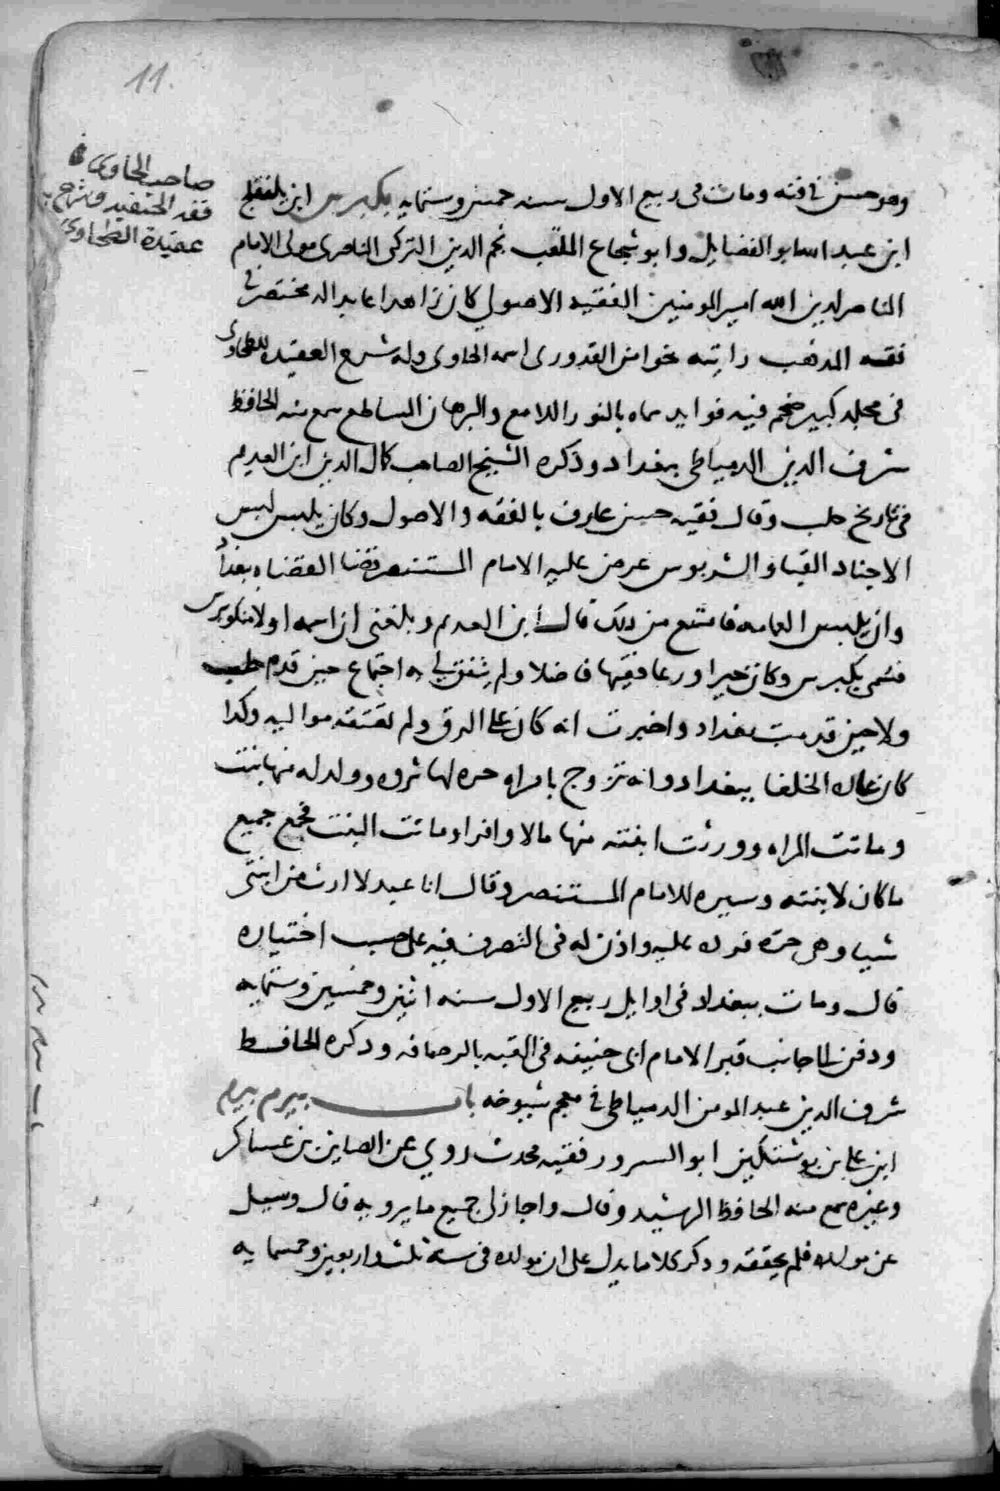 11.
صاحب الحاوي في
فقه الحنفيه وشرح
عقيدة الطحاوي
وهو حسن في فنه ومات في ربيع الاول سنه خمس وستمايه بكبرس ابن يلنقلج
ابن عبد الله ابو الفضايل وابو شجاع الملقب نجم الدين التركى الناصرى مولى الامام
الناصر لدين الله امير المومنين الفقيه الاصولي كان زاهدا عابدا له مختصر في
فقه المذهب رايته نحوا من القدورى اسمه الحاوى وله شرح العقيده للطحاوى
فى مجلد كبير ضخم فيه فوايد سماه بالنور اللامع والبرهان الساطع سمع منه الحافظ
شرف الدين الدمياطى ببغداد وذكره الشيخ الصاحب كمال الدين ابن العديم
فى تاريخ حلب وقال فقيه حسن عارف بالفقه والاصول وكان يلبس لبس
الاجناد القبا والشربوش عرض عليه الامام المستنصر قضا القضاه ببغداد
وان يلبس العمامه فامتنع من ذلك قال ابن العديم وبلغنى ان اسمه اولا منكوبرس
فسمى بكبرس وكان خيرا ورعا فقيها فاضلا ولم يتفق لى به اجتماع حين قدم حلب
ولا حين قدمت بغداد واخبرت انه كان على الرق ولم تعتقه مواليه وكذا
كان عاده الخلفا ببغداد وانه تزوج بامراه حره لها ثروه وولد له منها بنت
وماتت المراه وورثت ابنته منها مالا وافرا وماتت البنت فجمع جميع
ما كان لابنته وسيره للامام المستنصر وقال انا عبد لا ارث من ابنتى
شيا وهى حره فرده عليه واذن له فى التصرف فيه على حسب اختياره
قال ومات ببغداد فى اوايل ربيع الاول سنه اثنين وخمسين وستمايه
ودفن الى جانب قبر الامام ابى حنيفه فى القبه بالرصافه وذكره الحافظ
شرف الدين عبد المومن الدمياطى في معجم شيوخه باب بيرم بيرم
ابن على بن نوشتكين ابو السرور فقيه محدث روي عن الصاين بن عساكر
وغيره سمع منه الحافظ الرشيد وقال واجاز لى جميع ما يرويه قال وسيل
عن مولده فلم يحققه وذكر كلاما يدل على ان مولده فى سنة ثلث واربعين وخمسمايه